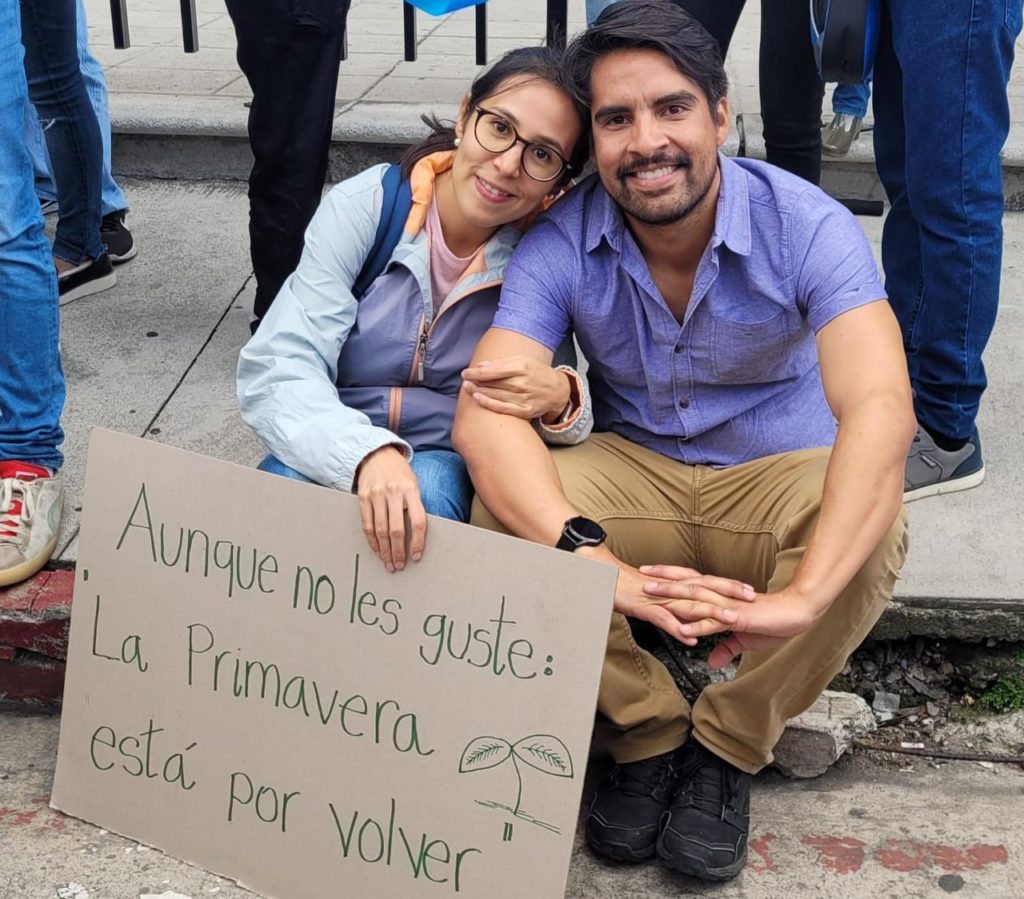 Aunque no les guste:
"La Primavera
está por volver"